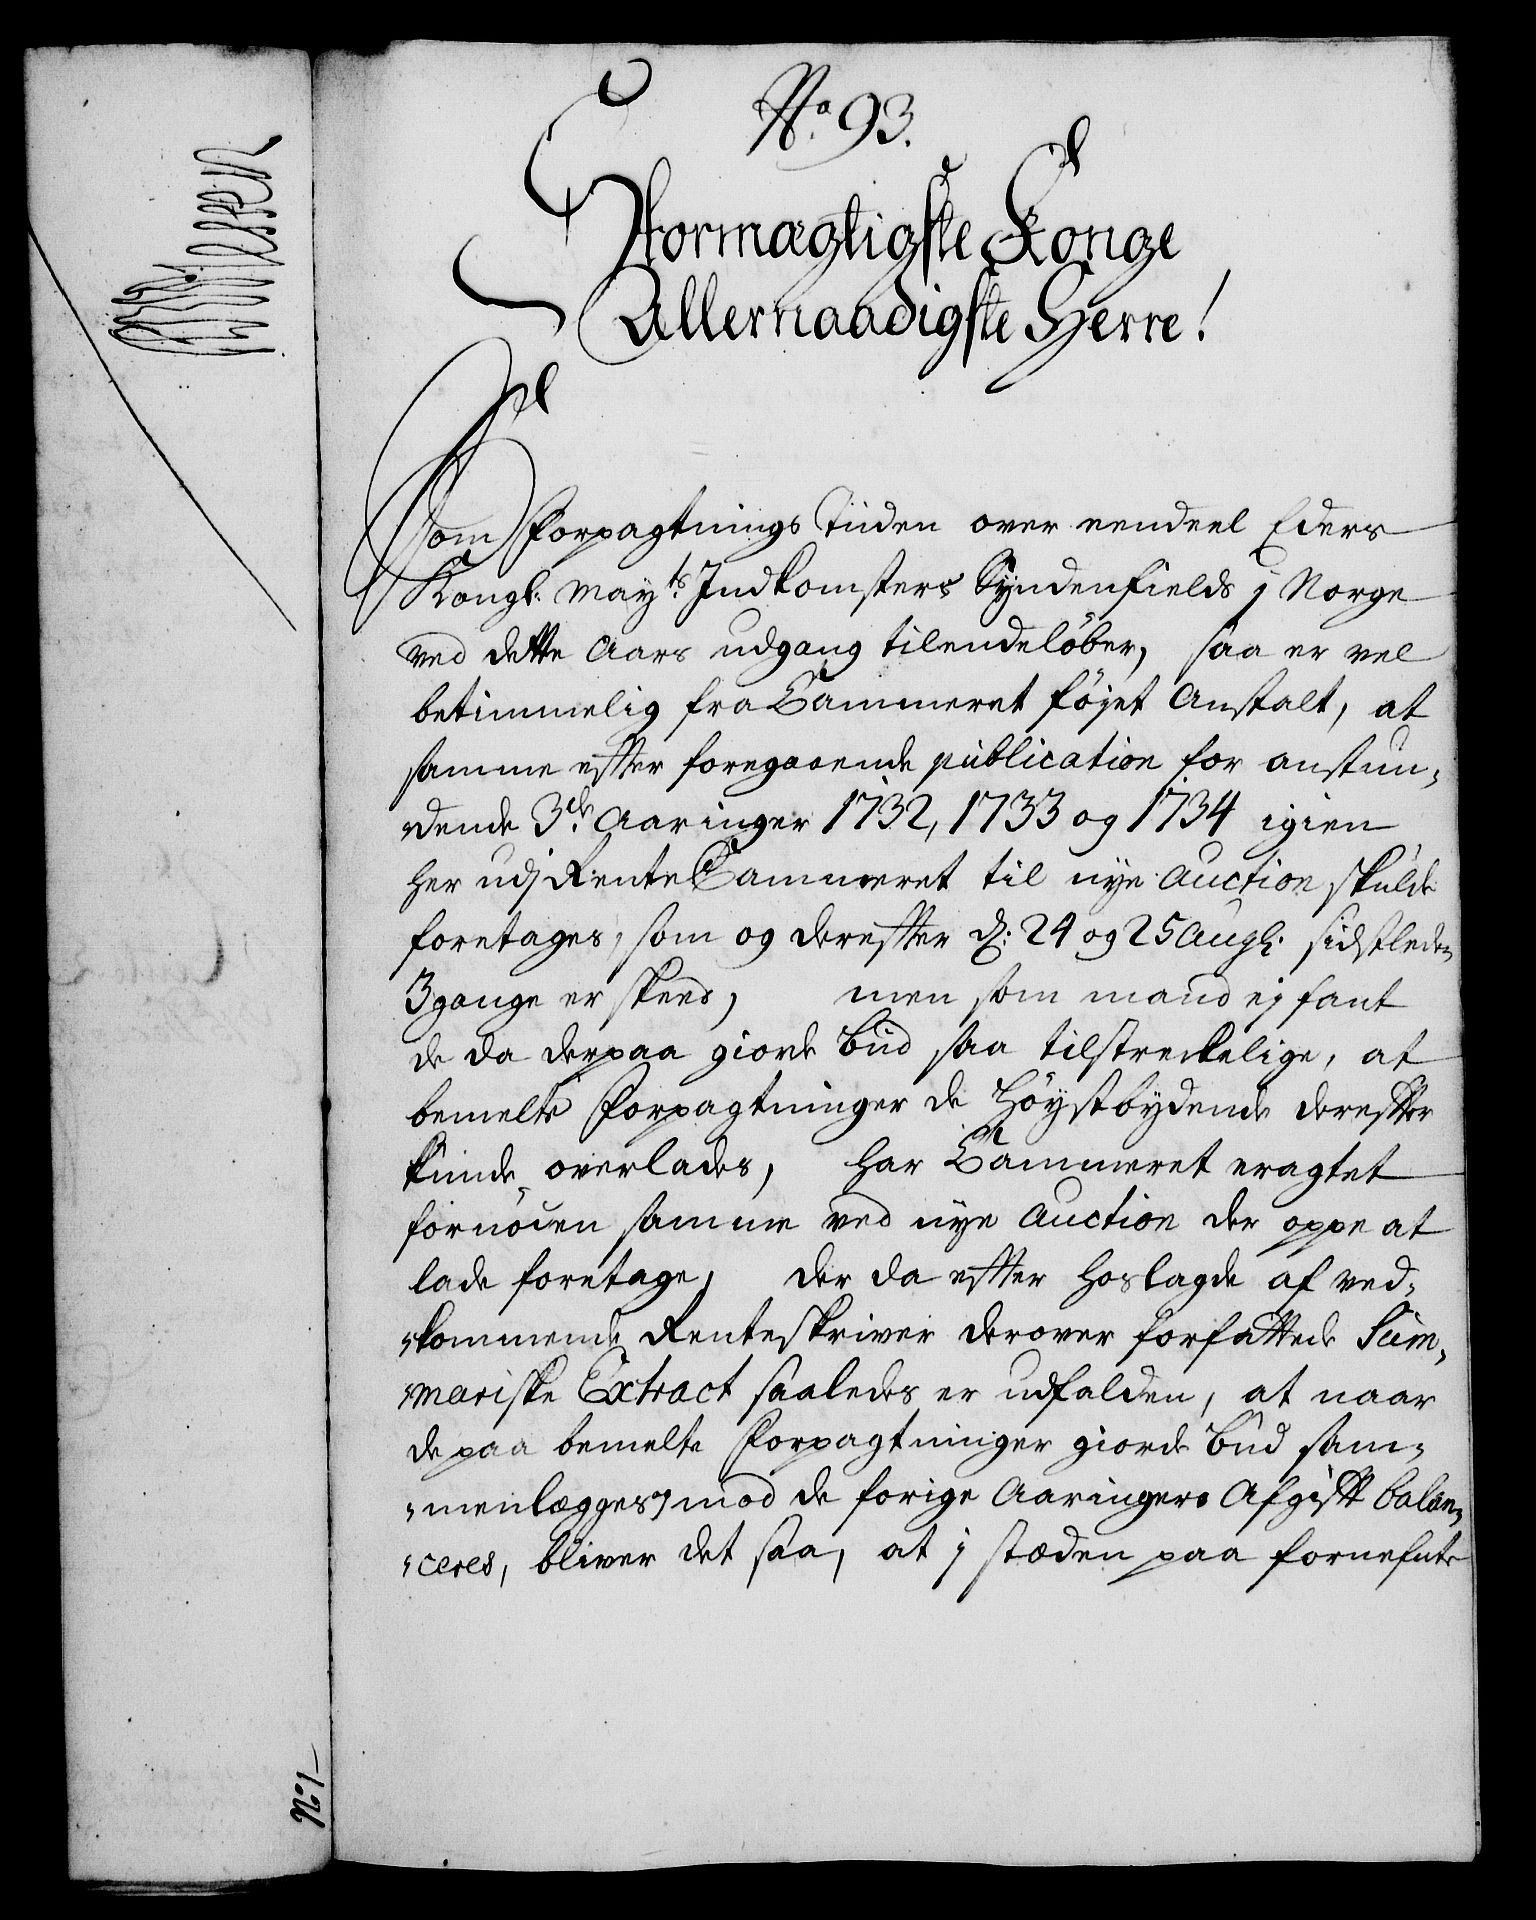 No. 93.
Stormægtigste Konge
Allernaadigste Herre!
Som Forpagtnings Tiiden over eendeel Eders
Kongl: Mayts: Indkomsters Syndenfields j Norge
ved dette Aars udgang tilendeløber, saa er vel
betimmelig fra Cammeret føjet Anstalt, at
samme efter foregaaende publication for anstun-
dende 3de. Aaringer 1732, 1733 og 1734 igien
her udj RenteCammeret til nye Auction skulde
foretages, som og derefter d: 24 og 25 Aug: sidstleden
3 gange er skeed, men som mand ej fant
de da derpaa giorde bud saa tilstreckelige, at
bemelte Forpagtninger de Høystbydende derefter
kunde overlades, har Cammeret eragtet
fornøden samme ved nye Auction der oppe at
lade foretage, der da efter hoslagde af ved-
kommende Renteskriver derover forfattede Sum-
mariske Extract saaledes er udfalden, at naar
de paa bemelte Forpagtninger giorde bud sam-
menlægges, mod de forige Aaringers Afgift balan-
ceres, bliver det saa, at j stæden paa fornefnte
No 1